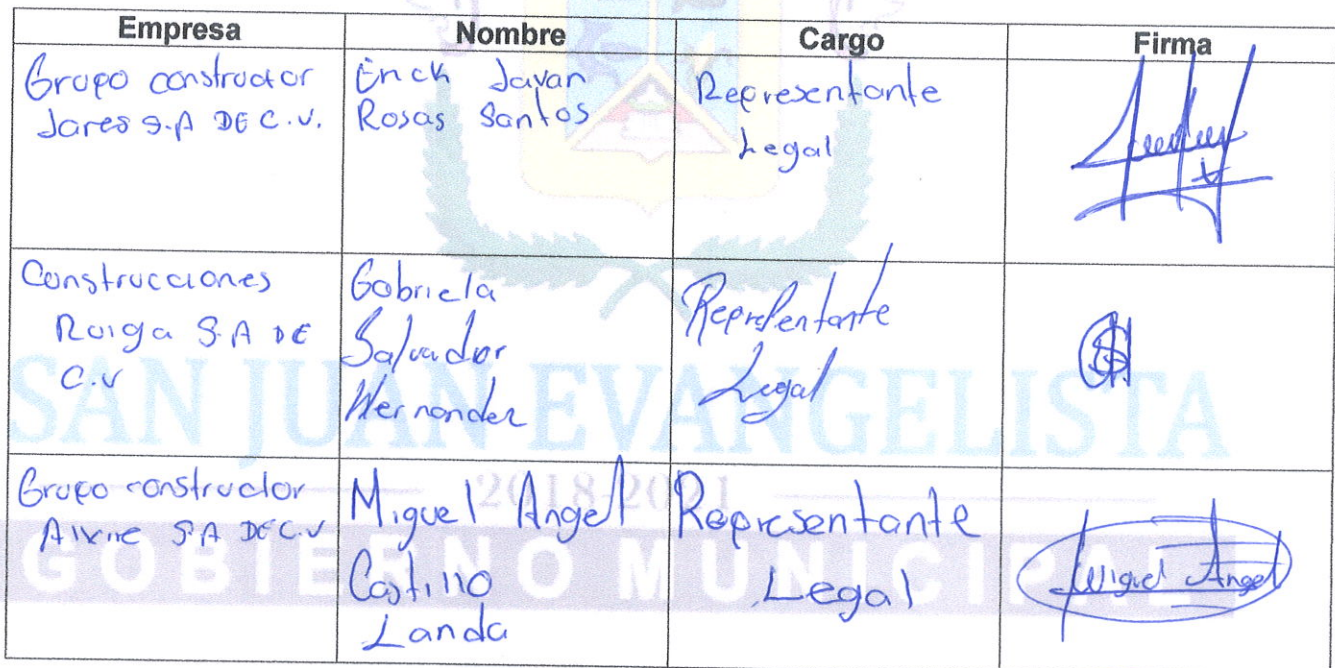 Empresa Nombre Cargo Firma
Grupo constructor
Jares S.A DE C.V.
Erick Javan
Rosas Santos
Representante
Legal
Construcciones
Roiga S.A DE
C.V
Gabriela
Salvador
Hernandez
Representante
Legal
Grupo constructor
S.A DE C.V
Miguel Angel
Castillo
Landa
Representante
Legal
Miguel Angel
SAN JUAN EVANGELISTA
2018-2021
GOBIERNO MUNICIPAL